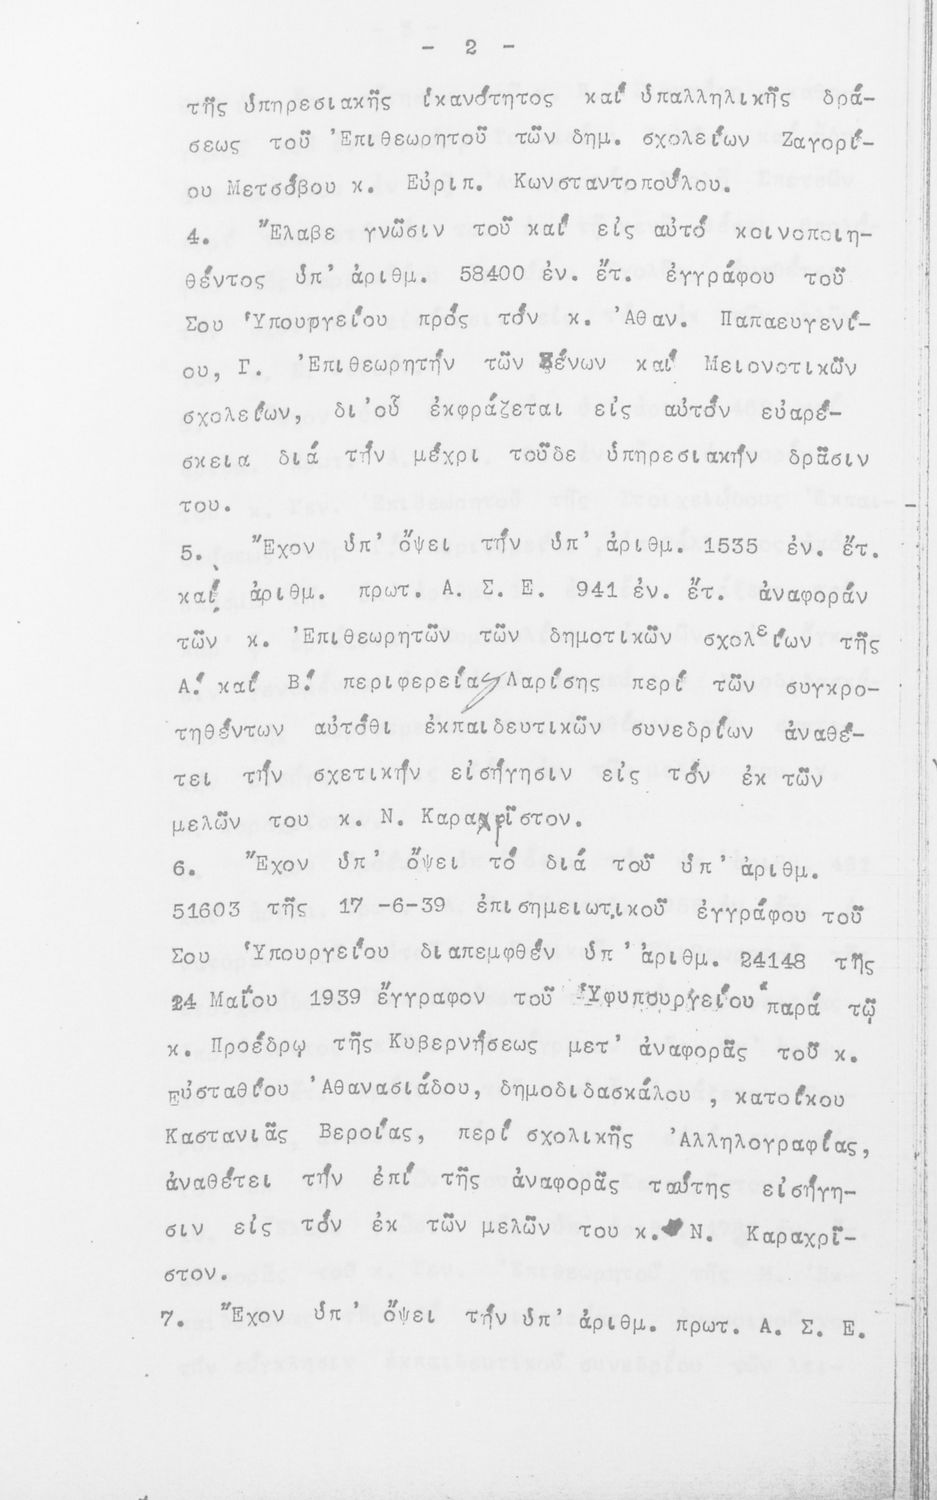 - 2 -
τῆς ὑπηρεσιακῆς ἱκανότητος καί ὑπαλληλικῆς δρά-
σεως τοῦ Ἐπιθεωρητοῦ τῶν δημ. σχολείων Ζαγορί-
ου Μετσόβου κ. Εὐριπ. Κωνσταντοπούλου.
4. Ἔλαβε γνῶσιν τοῦ καί εἰς αὐτό κοινοποιη-
θέντος ὑπ' ἀριθμ. 58400 ἐν. ἔτ. ἐγγράφου τοῦ
Σου Ὑπουργείου πρός τόν κ. Ἀθαν. Παπαευγενί-
ου, Γ. Ἐπιθεωρητήν τῶν Ξένων καί Μειονοτικῶν
σχολείων, δι'οὗ ἐκφράζεται εἰς αὐτόν εὐαρέ-
σκεια διά τήν μέχρι τοῦδε ὑπηρεσιακήν δρᾶσιν
του.
5. Ἔχον ὑπ' ὄψει τήν ὑπ' ἀριθμ. 1535 ἐν. ἔτ.
καί ἀριθμ. πρωτ. Α. Σ. Ε. 941 ἐν. ἔτ. ἀναφοράν
τῶν κ. Ἐπιθεωρητῶν τῶν δημοτικῶν σχολείων τῆς
Α.΄ καί Β.΄ περιφερείας Λαρίσης περί τῶν συγκρο-
τηθέντων αὐτόθι ἐκπαιδευτικῶν συνεδρίων ἀναθέ-
τει τήν σχετικήν εἰσήγησιν εἰς τόν ἐκ τῶν
μελῶν του κ. Ν. Καραχρῖστον.
6. Ἔχον ὑπ' ὄψει τό διά τοῦ ὑπ' ἀριθμ.
51603 τῆς 17 -6-39 ἐπισημειωτικοῦ ἐγγράφου τοῦ
Σου Ὑπουργείου διαπεμφθέν ὑπ' ἀριθμ. 24148 τῆς
24 Μαΐου 1939 ἔγγραφον τοῦ Ὑφυπουργείου παρά τῷ
κ. Προέδρῳ τῆς Κυβερνήσεως μετ' ἀναφορᾶς τοῦ κ.
Εὐσταθίου Ἀθανασιάδου, δημοδιδασκάλου , κατοίκου
Καστανιᾶς Βεροίας, περί σχολικῆς Ἀλληλογραφίας,
ἀναθέτει τήν ἐπί τῆς ἀναφορᾶς ταύτης εἰσήγη-
σιν εἰς τόν ἐκ τῶν μελῶν του κ. Ν. Καραχρῖ-
στον.
7. Ἔχον ὑπ' ὄψει τήν ὑπ' ἀριθμ. πρωτ. Α. Σ. Ε.